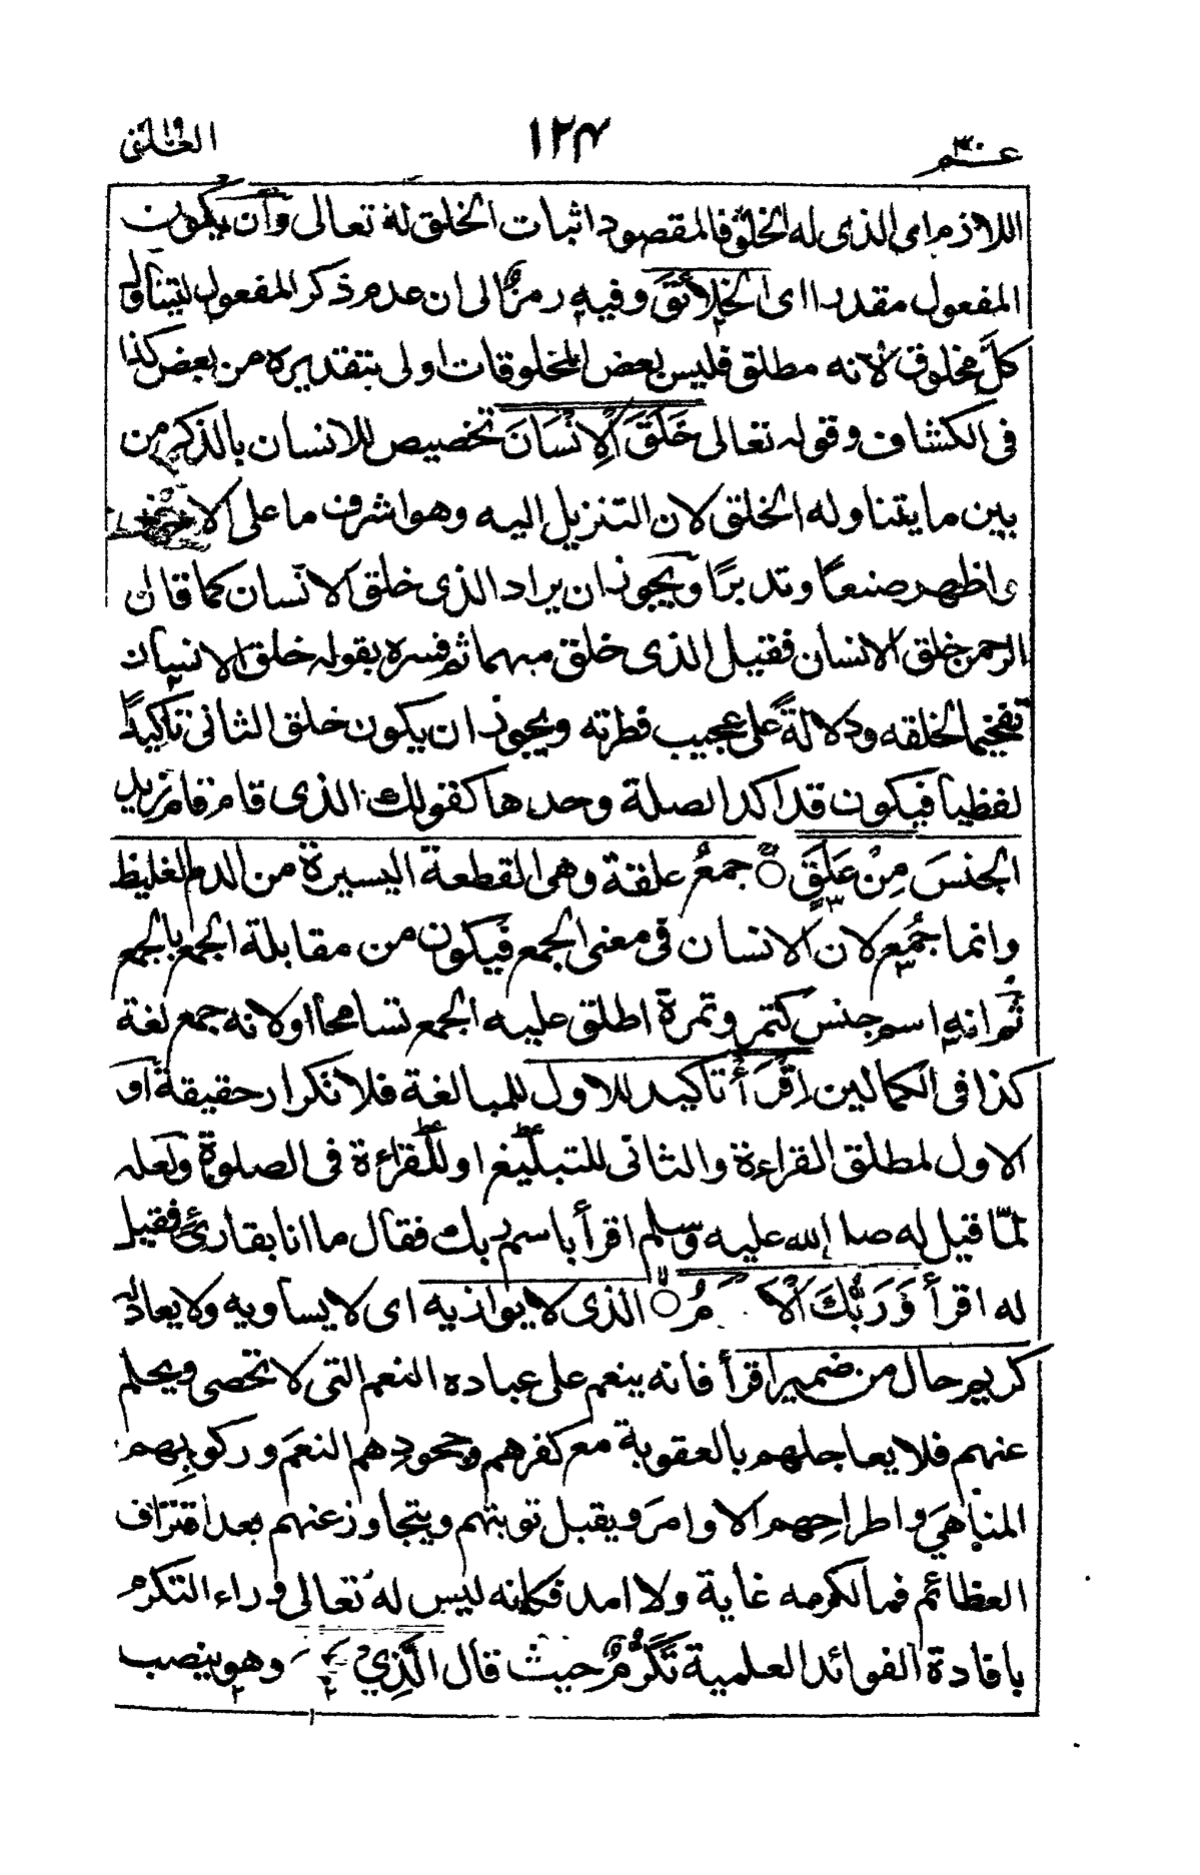 عـم ٣٠
١٢٤
العلق
اللازم اى الذى له الخلق فالمقصود اثبات الخلق له تعالى وان يكون
المفعول مقدرا اى الخلائق وفيه رمز الى ان عدم ذكر المفعول ليتناول
كل مخلوق لانه مطلق فليس بعض المخلوقات اولى بتقديره من بعض كذا
فى الكشاف وقوله تعالى خَلَقَ الْاِنْسَانَ تخصيص للانسان بالذكر من
بين ما يتناوله الخلق لان التنزيل اليه وهو اشرف ما على الارض
واظهر صنعًا وتدبرًا ويجوز ان يراد الذى خلق الانسان كما قال
الرحمن خلق الانسان فقيل الذى خلق مبهما ثم فسره بقوله خلق الانسان
تفخيما لخلقه ودلالةً على عجيب فطرته ويجوز ان يكون خلق الثانى تاكيدًا
لفظيا فيكون قد اكد الصلة وحدها كقولك الذى قام قام زيد
الجنسَ مِنْ عَلَقٍ ۝ جمعُ علقة وهى القطعة اليسيرة من الدم الغليظ
وانما جُمع لان الانسان فى معنى الجمع فيكون من مقابلة الجمع بالجمع
ثم انه اسم جنس كتمر وتمرة اطلق عليه الجمع تسامحا اولانه جمع لغة
كذا فى الكمالين اِقْرَأْ تاكيد للاول للمبالغة فلا تكرار حقيقة او
الاول لمطلق القراءة والثانى للتبليغ او للقراءة فى الصلوة ولعله
لمّا قيل له صلى الله عليه وسلم اقرأ باسم ربك فقال ما انا بقارئ فقيل
له اقرأ وَرَبُّكَ الْاَ مُ ۝ الذى لا يوازيه اى لا يساويه ولا يعادله
كريم حال من ضمير اقرأ فانه ينعم على عباده النعم التى لا تحصى ويحلم
عنهم فلا يعاجلهم بالعقوبة مع كفرهم وجحودهم النعمَ وركوبِهم
المناهىَ واطراحِهم الاوامرَ ويقبل توبتهم ويتجاوز عنهم بعد اقتراف
العظائم فما لكرمه غاية ولا امد فكانه ليس له تعالى وراء التكرم
بافادة الفوائد العلمية تَكَرُّمٌ حيث قال الَّذِيْ وهو ينصب